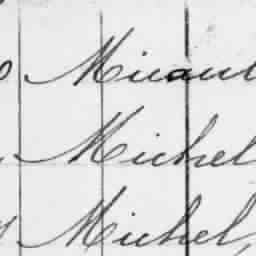 Micaul
Michel
Michel,